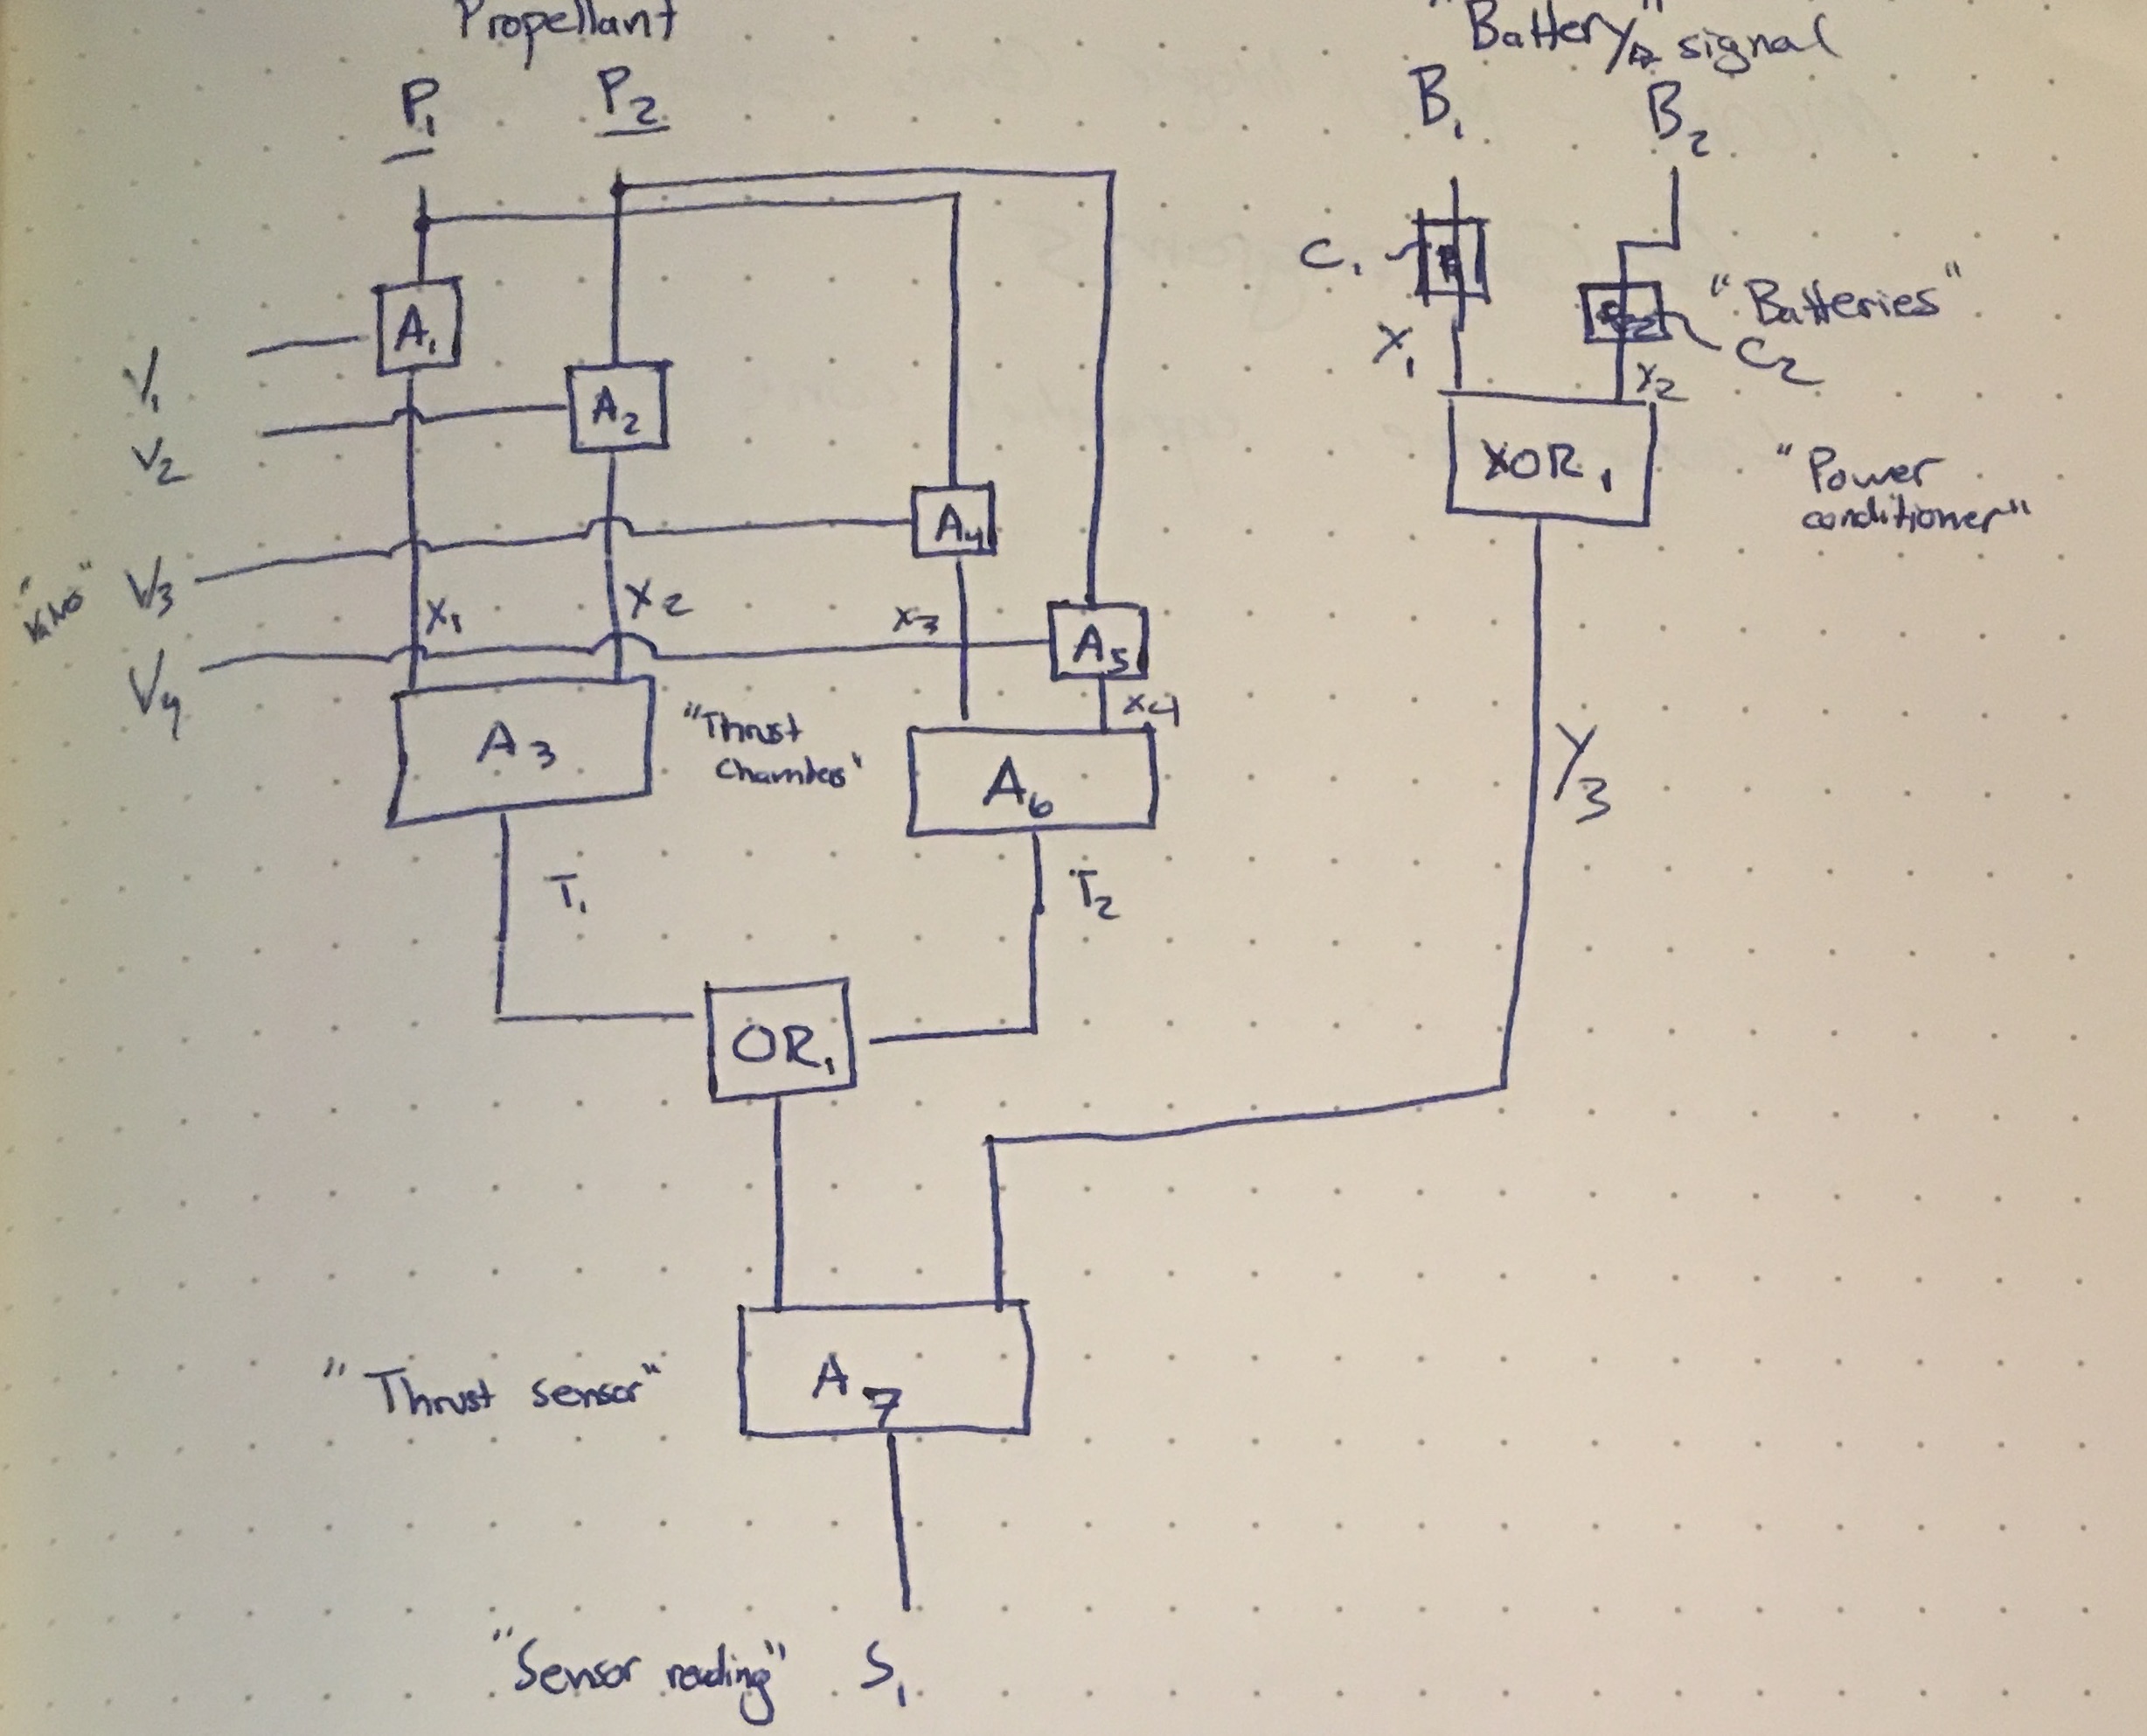 Propellant
"Battery" signal
P1
P2
B1
B2
C1
A1
"Batteries"
V1
X1
C2
A2
X2
V2
XOR1
"Power
conditioner"
A4
V3
X1
X2
X3
A5
V4
X4
A3
"Thrust
Chambers"
A6
Y3
T1
T2
OR1
A7
"Thrust sensor"
"Sensor reading" S1